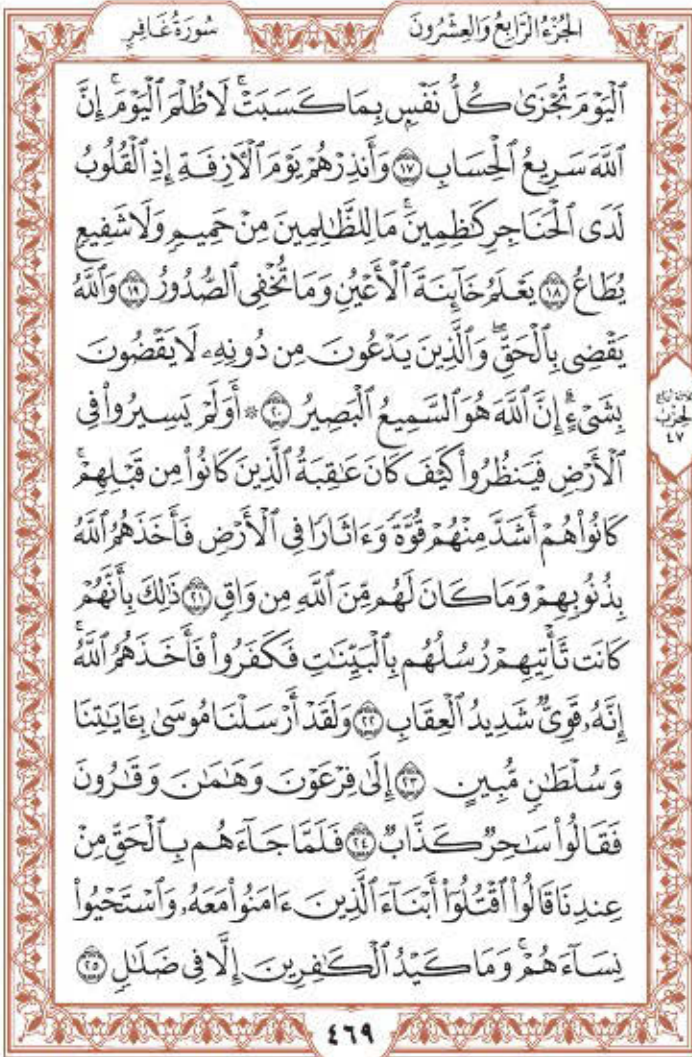 الجُزْءُ الرَّابِعُ وَالعِشْرُونَ
سُورَةُ غَافِرٍ
ٱلْيَوْمَ تُجْزَىٰ كُلُّ نَفْسٍۭ بِمَا كَسَبَتْۚ لَا ظُلْمَ ٱلْيَوْمَۚ إِنَّ
ٱللَّهَ سَرِيعُ ٱلْحِسَابِ ١٧ وَأَنذِرْهُمْ يَوْمَ ٱلْأٓزِفَةِ إِذِ ٱلْقُلُوبُ
لَدَى ٱلْحَنَاجِرِ كَٰظِمِينَۚ مَا لِلظَّٰلِمِينَ مِنْ حَمِيمٍ وَلَا شَفِيعٍ
يُطَاعُ ١٨ يَعْلَمُ خَآئِنَةَ ٱلْأَعْيُنِ وَمَا تُخْفِى ٱلصُّدُورُ ١٩ وَٱللَّهُ
يَقْضِى بِٱلْحَقِّۖ وَٱلَّذِينَ يَدْعُونَ مِن دُونِهِۦ لَا يَقْضُونَ
بِشَىْءٍۗ إِنَّ ٱللَّهَ هُوَ ٱلسَّمِيعُ ٱلْبَصِيرُ ٢٠ ۞ أَوَلَمْ يَسِيرُوا۟ فِى
ٱلْأَرْضِ فَيَنظُرُوا۟ كَيْفَ كَانَ عَٰقِبَةُ ٱلَّذِينَ كَانُوا۟ مِن قَبْلِهِمْۚ
كَانُوا۟ هُمْ أَشَدَّ مِنْهُمْ قُوَّةً وَءَاثَارًا فِى ٱلْأَرْضِ فَأَخَذَهُمُ ٱللَّهُ
بِذُنُوبِهِمْ وَمَا كَانَ لَهُم مِّنَ ٱللَّهِ مِن وَاقٍ ٢١ ذَٰلِكَ بِأَنَّهُمْ
كَانَت تَّأْتِيهِمْ رُسُلُهُم بِٱلْبَيِّنَٰتِ فَكَفَرُوا۟ فَأَخَذَهُمُ ٱللَّهُۚ
إِنَّهُۥ قَوِىٌّ شَدِيدُ ٱلْعِقَابِ ٢٢ وَلَقَدْ أَرْسَلْنَا مُوسَىٰ بِـَٔايَٰتِنَا
وَسُلْطَٰنٍ مُّبِينٍ ٢٣ إِلَىٰ فِرْعَوْنَ وَهَٰمَٰنَ وَقَٰرُونَ
فَقَالُوا۟ سَٰحِرٌ كَذَّابٌ ٢٤ فَلَمَّا جَآءَهُم بِٱلْحَقِّ مِنْ
عِندِنَا قَالُوا۟ ٱقْتُلُوٓا۟ أَبْنَآءَ ٱلَّذِينَ ءَامَنُوا۟ مَعَهُۥ وَٱسْتَحْيُوا۟
نِسَآءَهُمْۚ وَمَا كَيْدُ ٱلْكَٰفِرِينَ إِلَّا فِى ضَلَٰلٍ ٢٥
الحزب
٤٧
٤٦٩